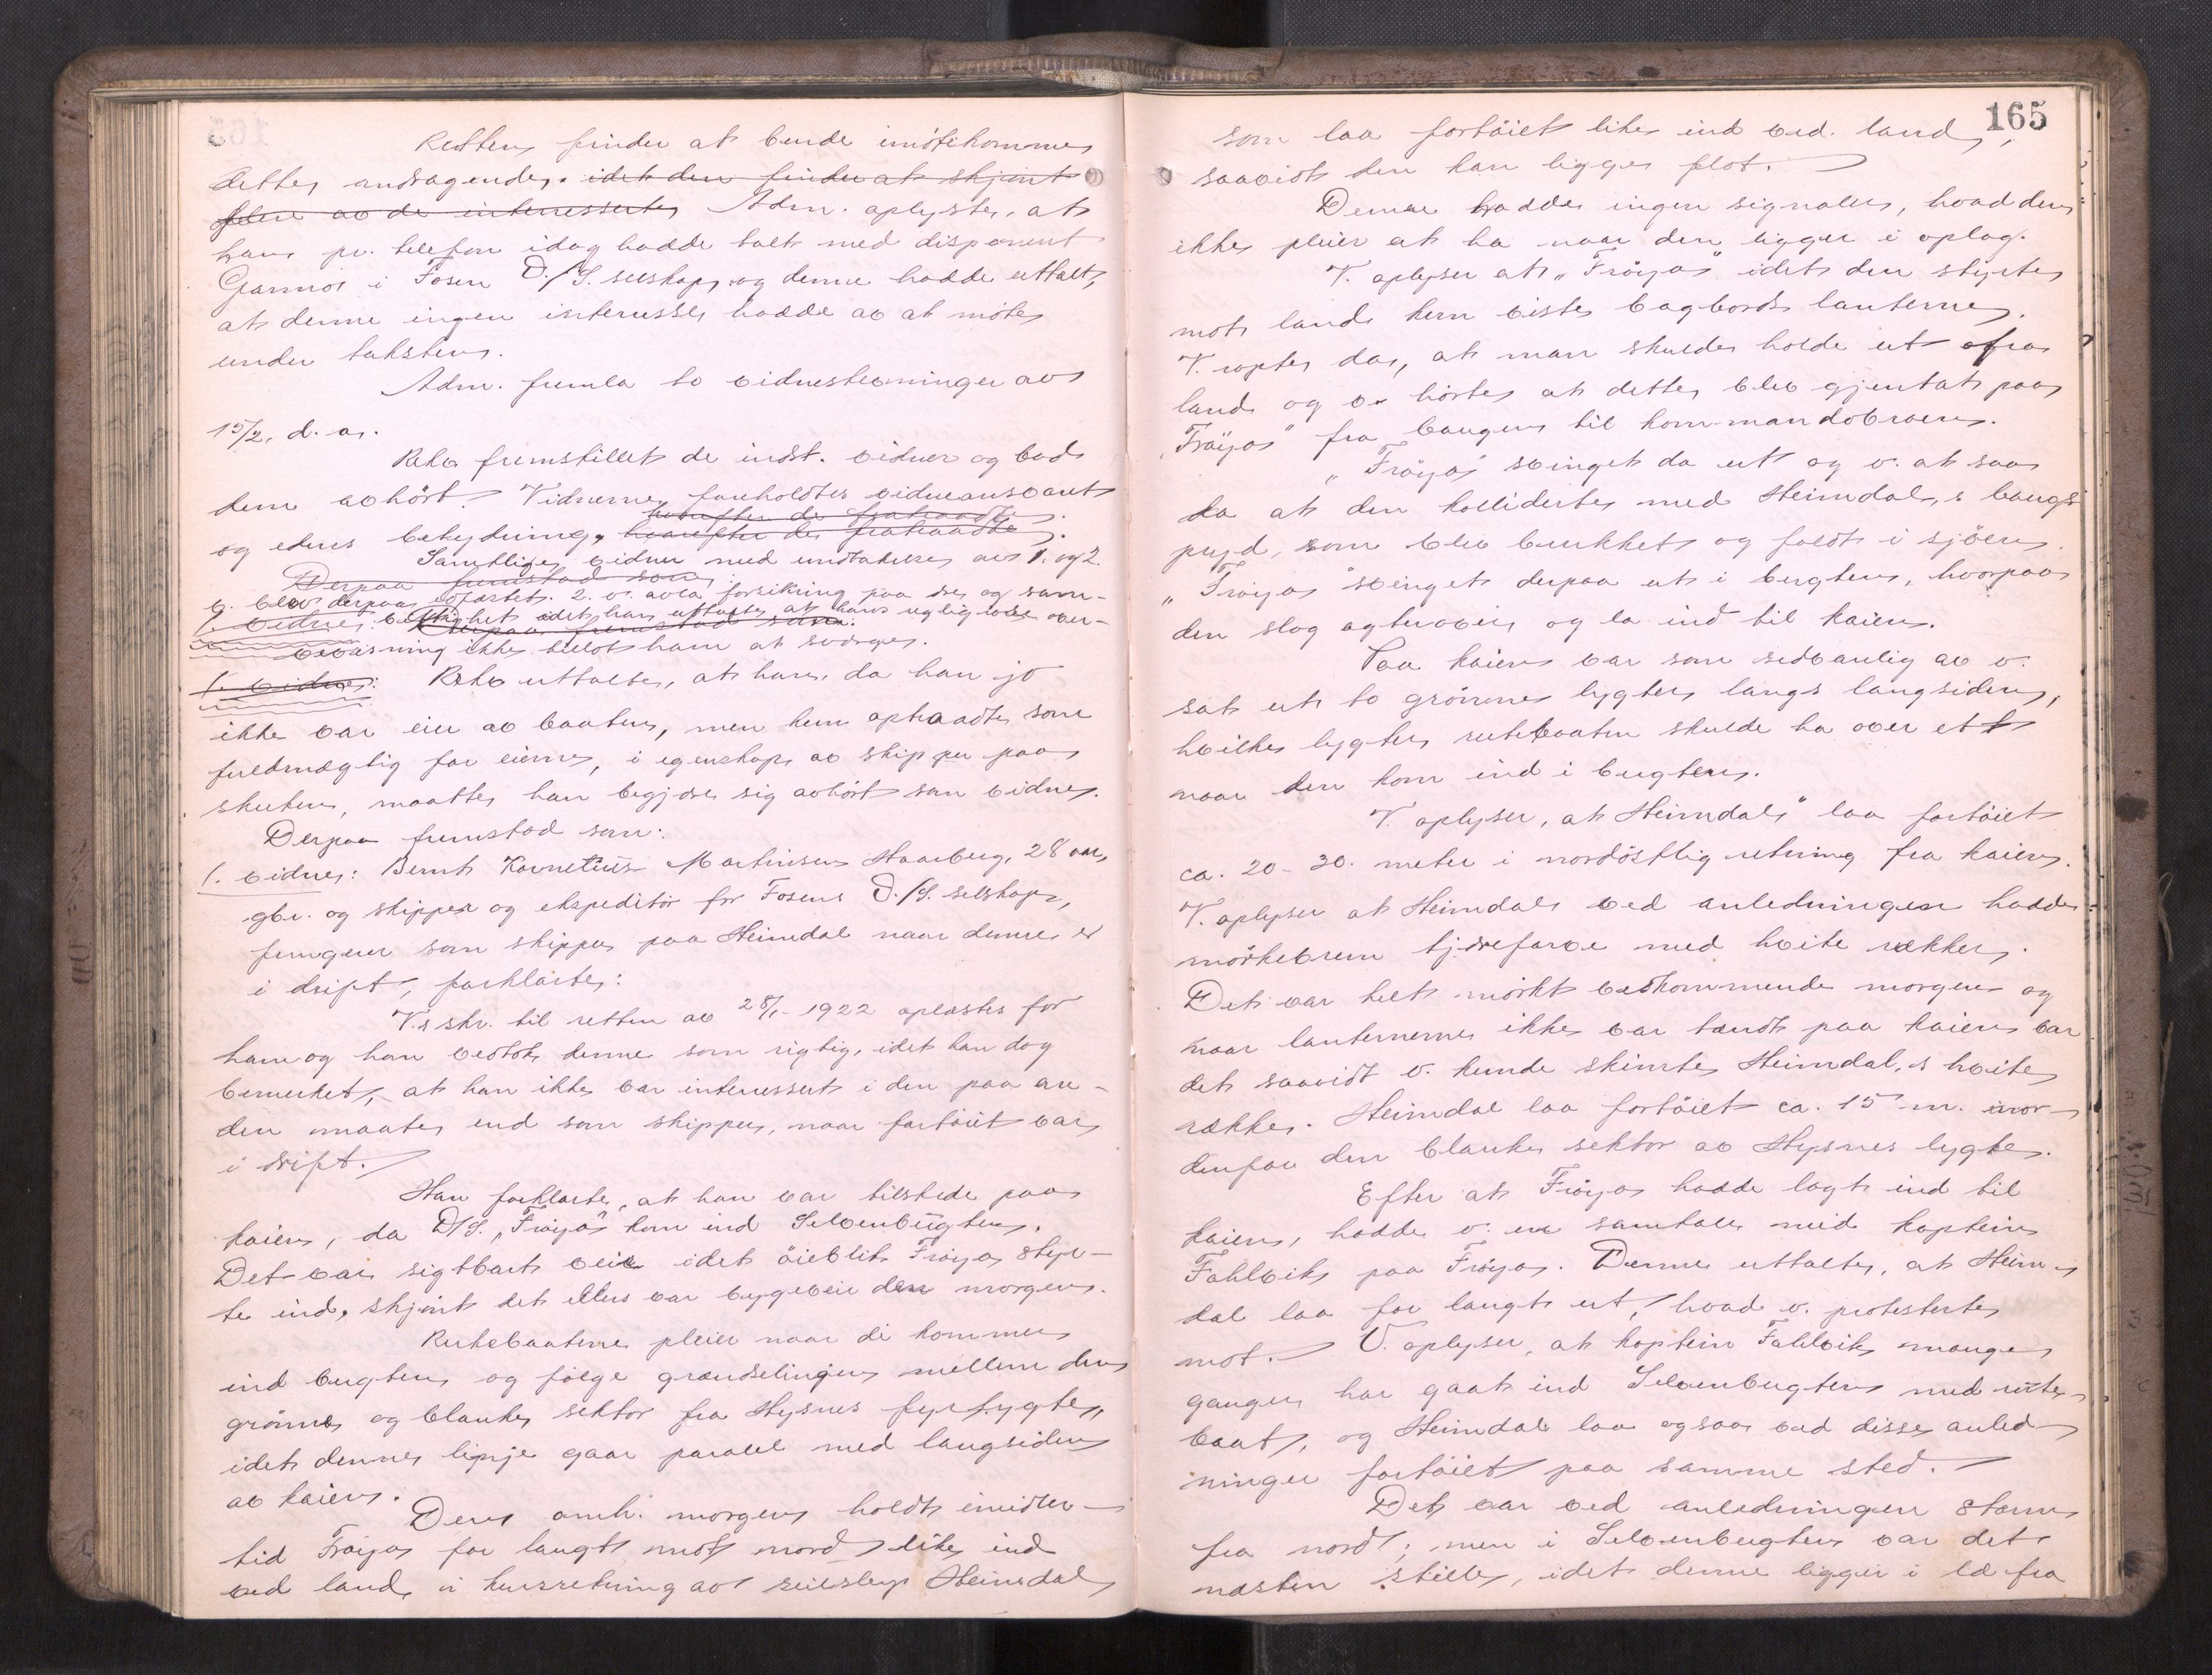 Retten finder at burde imøtekomme
dette andragende. idet den finder at skjønt
flere av de interesserte Adm. oplyste, at
han pr. telefon idag hadde talt med disponent
i Fosen D./S. selskap, og denne hadde uttalt,
at denne ingen interesse hadde av at møte
under taksten.
Adm. fremla to vidnestevninger av
15/2. d. a.
Rekv. fremstillet de indst. vidner og bad
dem avhørt. Vidnerne foreholdtes vidneansvaret
hvorefter de fratraadte.
og edens betydning, hvorefter de fratraadte.
Samtlige vidner med undtakelse av 1. og 2.
Derpaa fremstod som:
v. blev derpaa edfæstet. 2. v. avla forsikring paa ære og sam-
1. vidne: vittighet idet han uttalte at hans religiøse over-
Derpaa fremstod som:
bevisning ikke tillot ham at sverge.
1. vidne: Rekv. uttalte, at han, da han jo
ikke var eier av baaten, men kun optraadte som
fuldmægtig for eierne, i egenskap av skipper paa
skuten, maatte han begjære sig avhørt som vidne.
Derpaa fremstod som:
1. vidne: Bernt Kornelius Martinsen Haarberg, 28 aar,
gbr. og skipper og ekspeditør for Fosens D./S. selskap,
fungerer som skipper paa Heimdal naar denne er
i drift, forklarte:
V.s skr. til retten av 28/1-1922 oplæstes for
ham og han vedtok denne som rigtig, idet han dog
bemerket, at han ikke var interessert i den paa an-
den maate end som skipper, naar fartøiet var
i drift.
Han forklarte, at han var tilstede paa
kaien, da D/S. „Frøya" kom ind Selvenbugten.
Det var sigtbart veir idet øieblik Frøya styr-
te ind, skjønt det ellers var bygeveir den morgen.
Rutebaatene pleier naar de kommer
ind bugten og følge grændselinjen mellem den
grønne og blanke sektor fra Hysnes fyrlygte,
idet dennes linje gaar paralel med langsiden
av kaien.
Den omh. morgen holdt imidler-
tid Frøya for langt mot nord like ind
ved land i kursretning av seilskup Heimdal
165
som laa fortøiet like ind ved land,
saavidt den kan ligge flot.
Denne hadde ingen signaler, hvad den
ikke pleier at ha naar den ligger i oplag.
V. oplyser at „Frøya" idet den styrte
mot land kun viste bagbords lanterne.
V. ropte da, at man skulde holde ut fra
land og v. hørte at dette blev gjentat paa
„Frøya" fra baugen til kommandobroen.
„Frøya" svinget da ut og v. at saa
da at den kolliderte med Heimdal,s baug-
spyd, som blev brukket og faldt i sjøen.
„Frøya" svinget derpaa ut i bugten, hvorpaa
den slog agterover og la ind til kaien.
Paa kaien var som sedvanlig av v.
sat ut to grønne lygter langs langsiden,
hvilke lygter rutebaaten skulde ha over ett
naar den kom ind i bugten.
V. oplyser, at Heimdal" laa fortøiet
ca. 20-30. meter i nordøstlig retning fra kaien.
V. oplyser at Heimdal ved anledningen hadde
mørkebrun tjærefarve med hvite rækker.
Det var helt mørkt vedkommende morgen og
naar lanternerne ikke var tændt paa kaien var
det saavidt v. kunde skimte Heimdal,s hvite
række. Heimdal laa fortøiet ca. 15 m. nor-
denfor den blanke sektor av Hysnes lygte.
Efter at Frøya hadde lagt ind til
kaien, hadde v. en samtale med kaptein
Fahlvik paa Frøya. Denne uttalte, at Heim-
dal laa for langt ut, hvad v. protesterte
mot. V. oplyser, at kaptein Fahlvik mange
ganger har gaat ind Selvenbugten med rute-
baat, og Heimdal laa ogsaa ved disse anled-
ninger fortøiet paa samme sted.
Det var ved anledningen storm
fra nord; men i Selvenbugten var det
næsten stille, idet denne ligger i læ fra